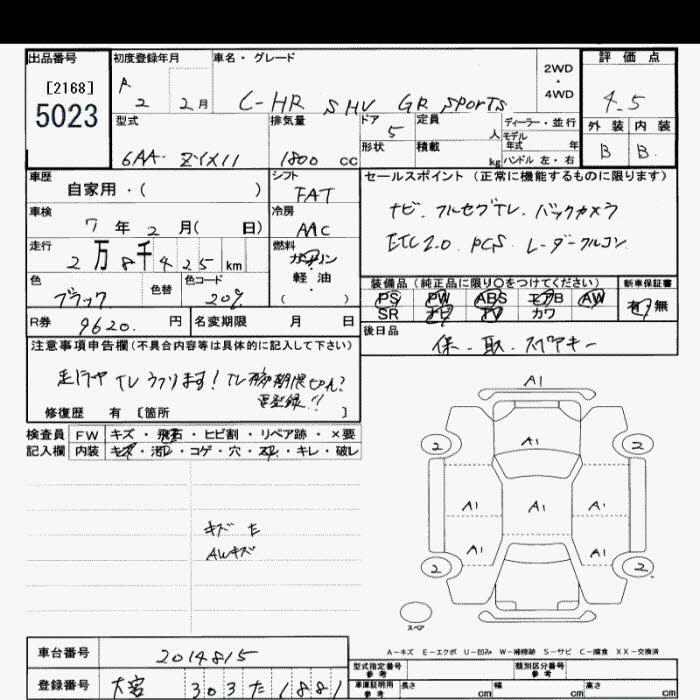 出品番号
[2168]
5023
初度登録年月
R 2 2月
車名・グレード
C-HR S HV GR SPORTS
2WD
・
4WD
評価点
4.5
外装 内装
B B
型式
6AA- ZYX11
排気量
1800 cc
ドア
5
形状
定員 人
積載 kg
ディーラー・並行
モデル
年式 年
ハンドル 左・右
車歴
自家用・( )
シフト
FAT
セールスポイント (正常に機能するものに限ります)
ナビ. フルセグTV. バックカメラ
ETC2.0. PCS. レーダークルコン
車検
7年 2月( 日)
冷房
AAC
走行
2万8千425km
燃料
ガソリン
軽・油
( ・ )
色
ブラック
色替
色コード
209
装備品 (純正品に限り○をつけてください)
新車保証書
PS PW ABS エアB AW
SR ナビ TV カワ
有・無
R券 9620. 円
名変期限 月 日
後日品
保. 取. スペアキー
注意事項申告欄 (不具合内容等は具体的に記入して下さい)
走行中TVうつります!
修復歴 有 [箇所 ]
検査員
記入欄
FW キズ・飛石・ヒビ割・リペア跡・×要
内装 キズ・汚レ・コゲ・穴・スレ・キレ・破レ
キズ た
AWキズ
A1
2 A1 2
A1 A1 A1
A1 A1
2 2
スペア
A-キズ E-エクボ U-凹み W-補修跡 S-サビ C-腐食 XX-交換済
車台番号 2014815
登録番号 大宮 303 た 1881
型式指定番号
参考
類別区分番号
参考
車庫証明用
参考
長さ cm 幅 cm 高さ cm